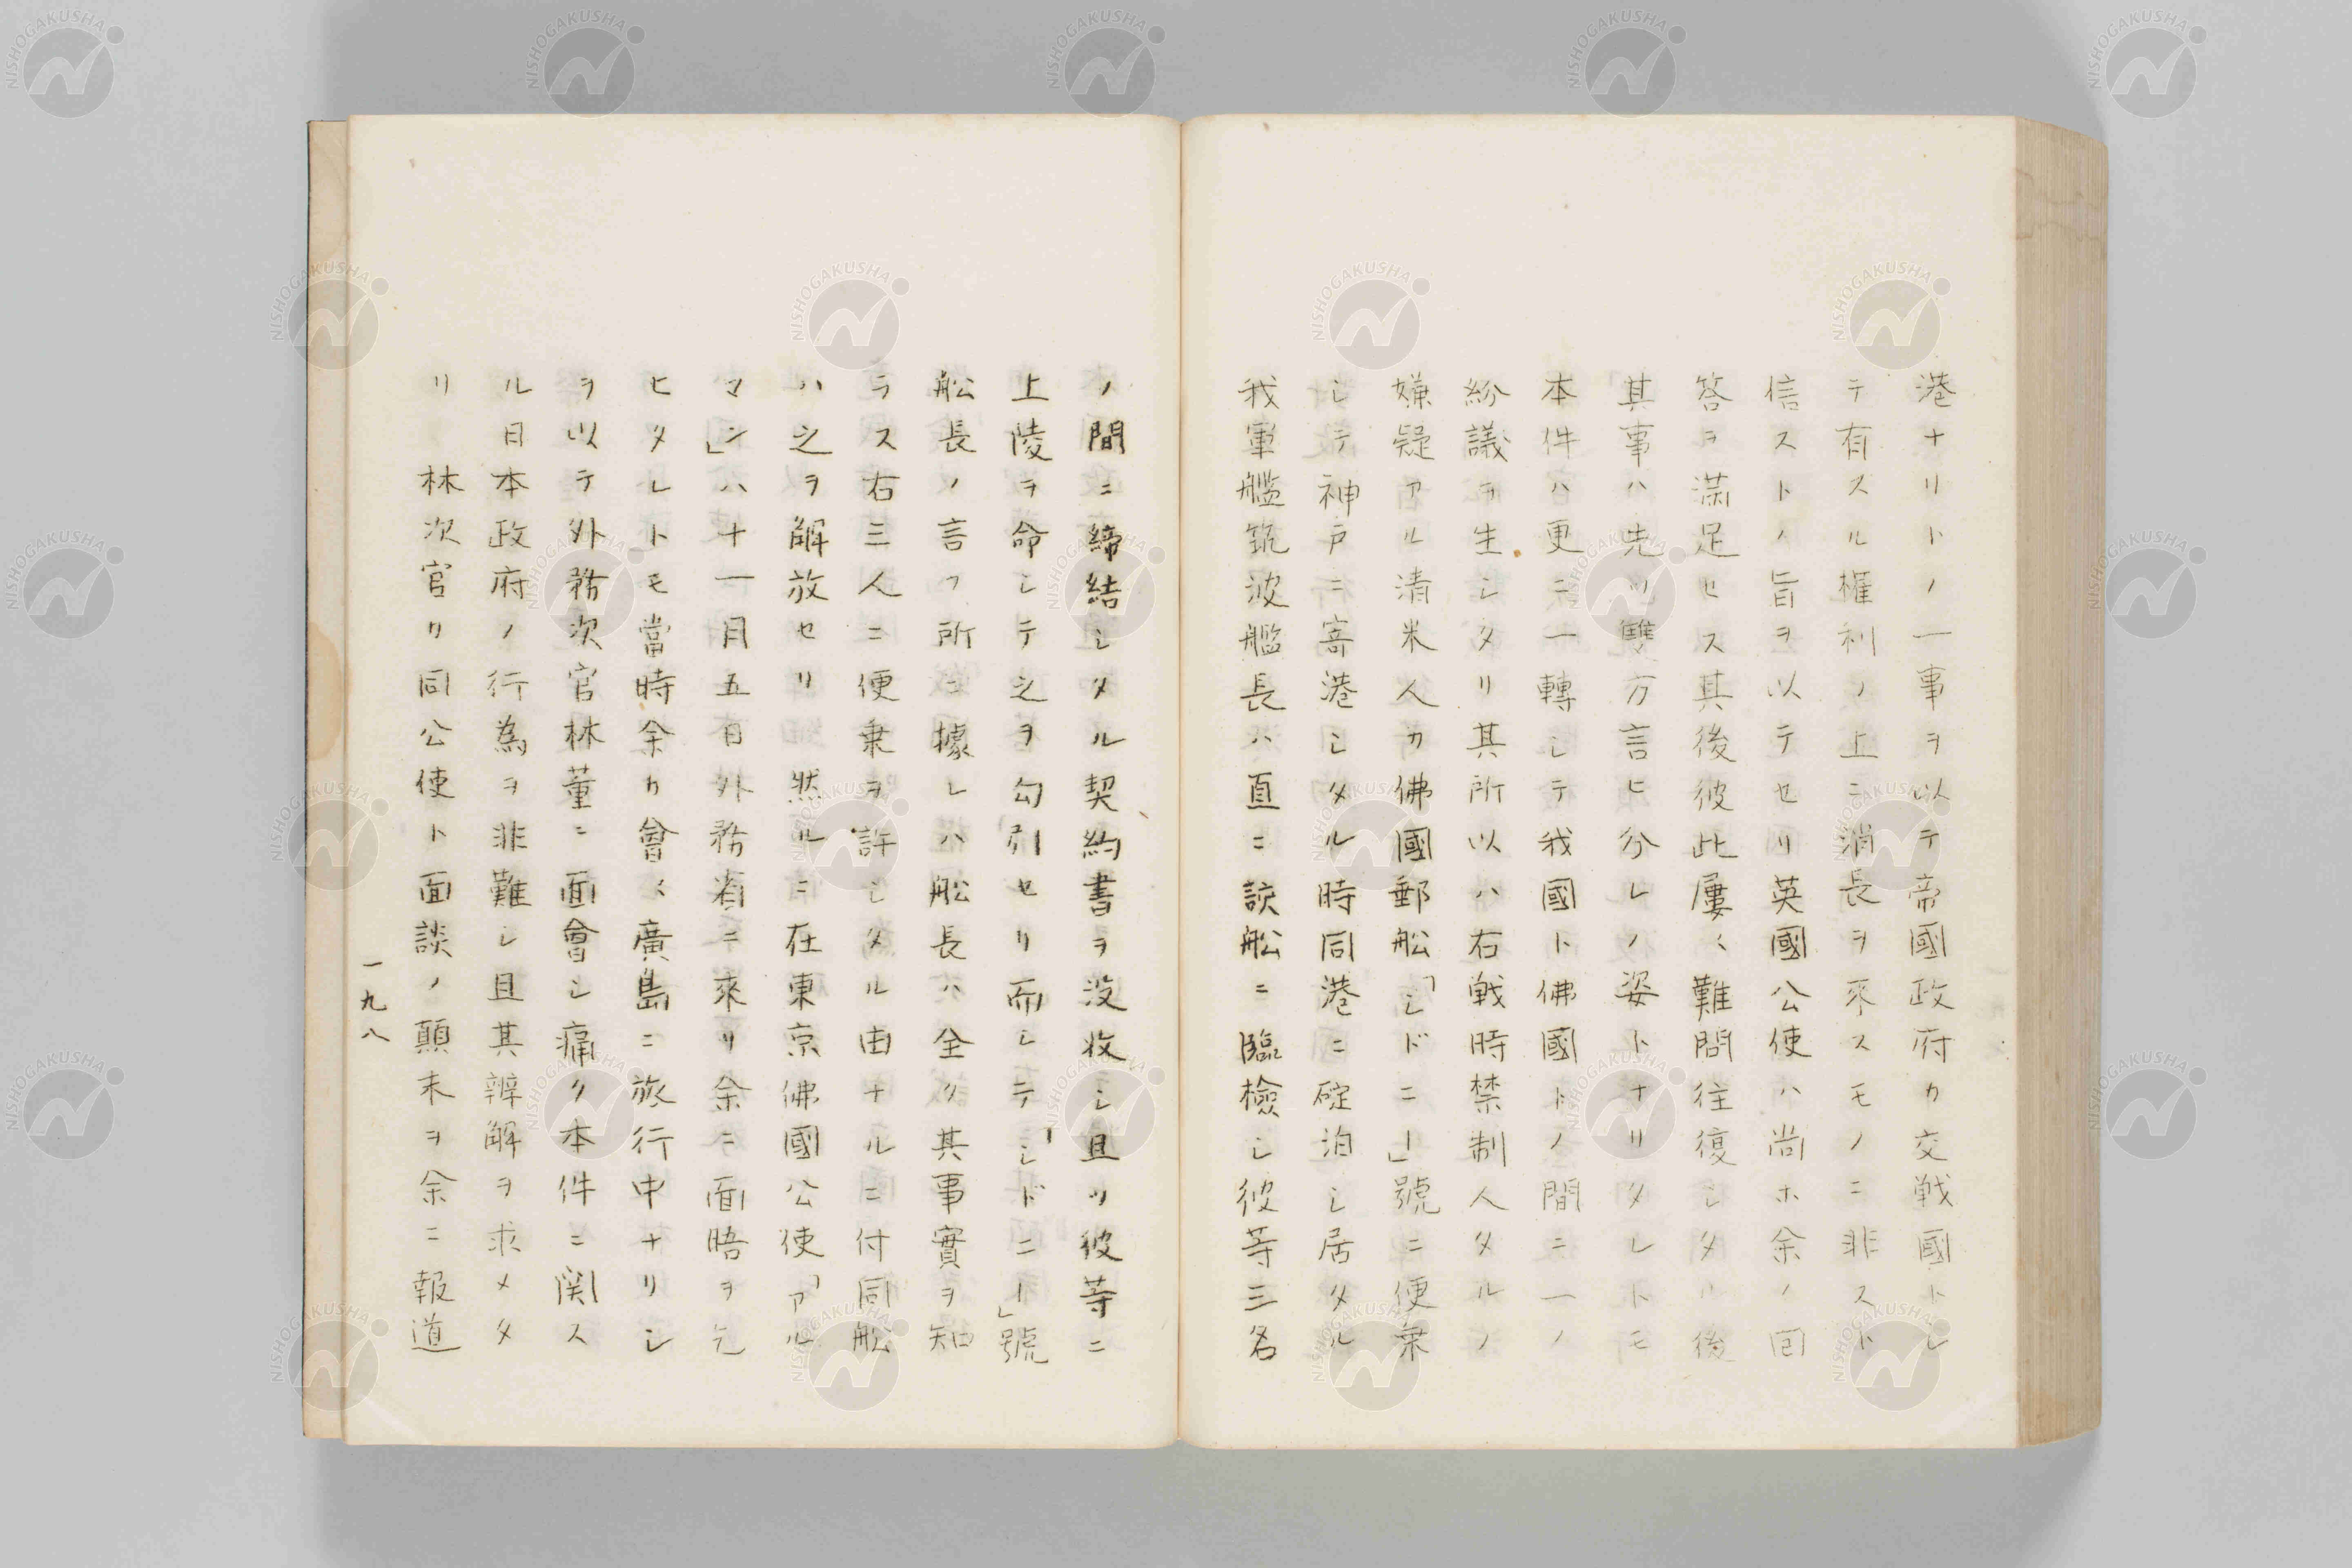 港ナリトノ一事ヲ以テ帝國政府カ交戦國トシ
テ有スル権利ノ上ニ消長ヲ來スモノニ非スト
信ストノ旨ヲ以テセリ英國公使ハ尚ホ余ノ回
答ヲ満足セス其後彼此屢〻難問往復シタル後
其事ハ先ツ雙方言ヒ分レノ姿トナリタレトモ
本件ハ更ニ一轉シテ我國ト佛國トノ間ニ一ノ
紛議ヲ生シタリ其所以ハ右戦時禁制人タルノ
嫌疑アル清米人カ佛國郵舩「シドニー」號ニ便乗
シテ神戸ニ寄港シタル時同港ニ碇泊シ居タル
我軍艦筑波艦長ハ直ニ該舩ニ臨檢シ彼等三名
ノ間ニ締結シタル契約書ヲ没收シ且ツ彼等ニ
上陸ヲ命シテ之ヲ勾引セリ而シテ「シドニー」號
舩長ノ言フ所ニ據レハ舩長ハ全ク其事實ヲ知
ラス右三人ニ便乗ヲ許シタル由ナルニ付同舩
ハ之ヲ解放セリ然ルニ在東京佛國公使「アル
マン」ハ十一月五日外務省ニ來リ余ニ面晤ヲ乞
ヒタレトモ當時余カ會〻廣島ニ旅行中ナリシ
ヲ以テ外務次官林董ニ面會シ痛ク本件ニ関ス
ル日本政府ノ行為ヲ非難シ且其辨解ヲ求メタ
リ　林次官カ同公使ト面談ノ顛末ヲ余ニ報道
一九八
NISHOGAKUSHA